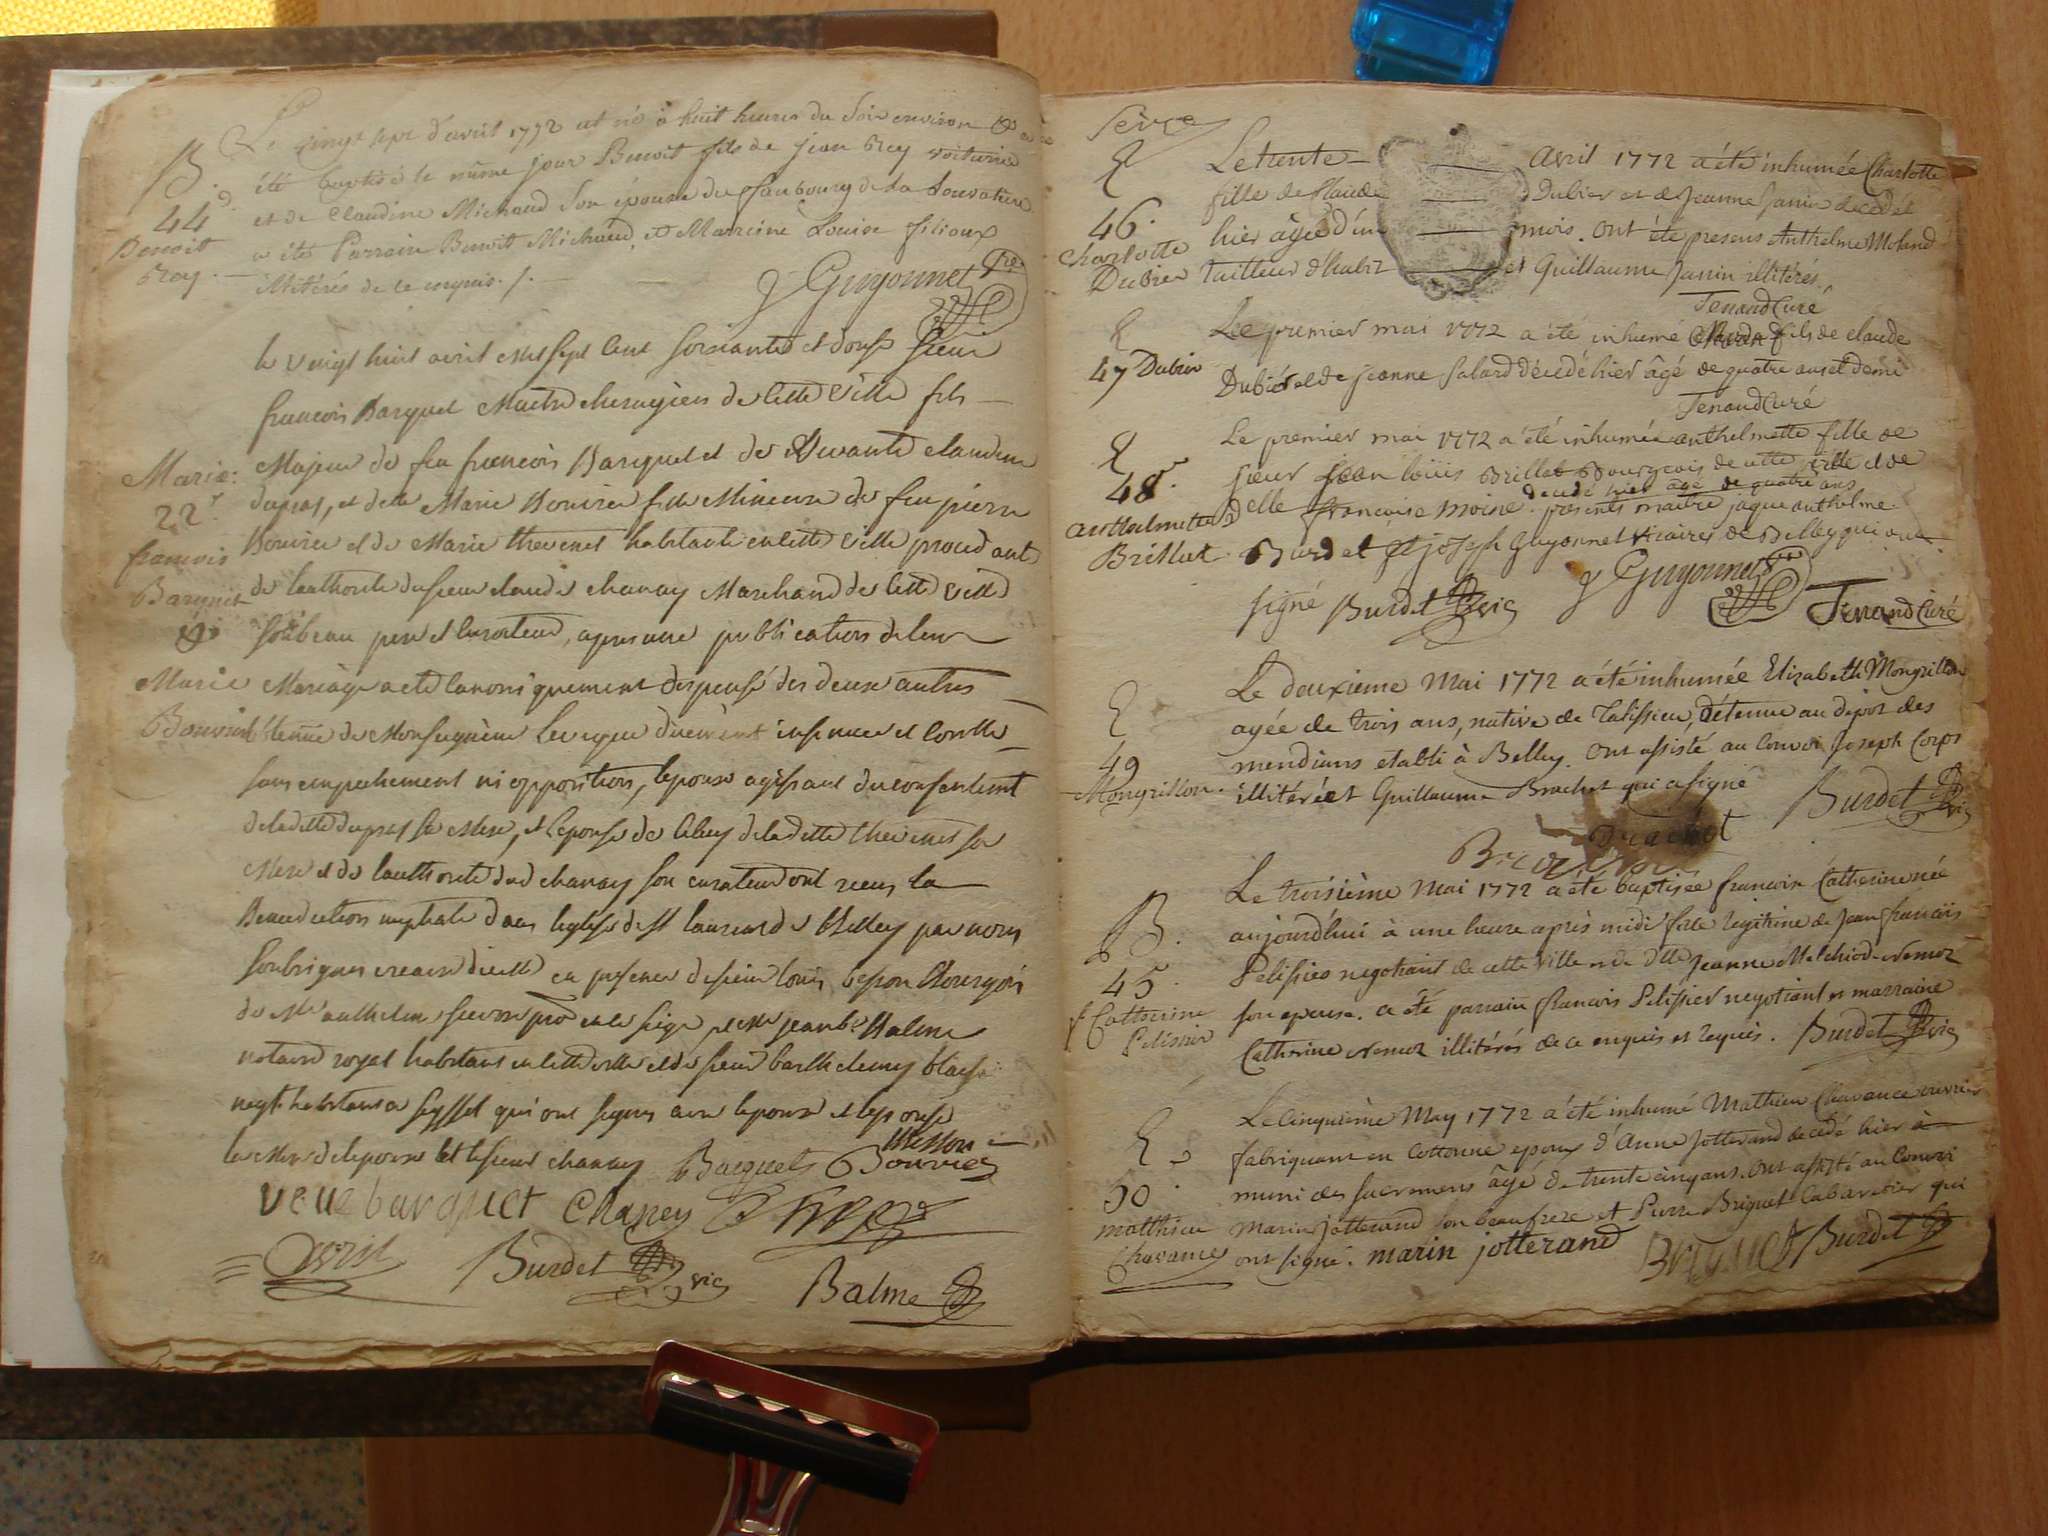 B.
44e
Benoit
Rey
Le vingt sept d'avril 1772 est né à huit heures du soir environ & a
été baptisé le même jour Benoit fils de jean Rey voiturier
et de Claudine Michaud son épouse du faubourg de la
a été Parrain Benoit Michaud, et Marreine Louise filioux
illitérés de ce enquis ./.
J Guyonnet
Mariae:
22
francois
Barquet
&
Marie
Bouvier
le vingt huit avril mil sept cent soixante et douze sieur
francois Barquet Maitre chirurgien de cette ville fils
Majeur de feu francois Barquet et de vivante claudine
dupras, et dlle Marie Bouvier fille Mineure de feu pierre
Bouvier et de Marie thevenet habitante en cette ville procedant
de lauthorité du sieur claude chanay Marchand de cette ville
son beau pere et curateur, apres une publication de leur
Mariage a été canoniquement dispensé des deux autres
obtenüe de Monseigneur Leveque düement insinuee et controllee
sans empechement ni opposition, lepoux agissant du consentement
de la ditte dupras sa Mere, et lepouse de celuy de la ditte thevenet sa
Mere et de lauthorité dud chanay son curateur ont recus la
Benediction nuptiale dans leglise de st laurent de Belley par nous
soubsignes vicaire dicelle en presence de sieur louis besson Bourgois
de Me anthelme proc en ce siege de Me jean be Balme
notaire royal habitant en cette ville et de sieur barthelemy blaise
negt. habitant a seyssel qui ont signes avec lepoux et lepouse
la Mere de lepoux et le sieur chanay Barquet Bouvier
Besson
veuve barquet Chaney
Burdet vic
Balme
Seize
E
46.
Charlotte
Dubier
Le trente avril 1772 a été inhumée Charlotte
fille de Claude Dubier et de Jeanne Janin decedée
hier agée d'un mois. Ont été presens Anthelme Moland
tailleur d'habit et Guillaume Janin illitérés.
Tenand Curé
E
47 Dubier
Le premier mai 1772 a été inhumé fils de claude
Dubier et de jeanne Salard décedé hier âgé de quatre ans et demi
Tenand Curé
E
48
anthelmette
Brillat
Le premier mai 1772 a été inhumée anthelmette fille de
sieur jean louis Brillat Bourgeois de cette ville et de
decedé hier âgé de quatre ans
delle francoise moine. presents maitre jaque anthelme
Burdet et joseph guyonnet vicaires de Belley qui ont
signé Burdet vic J Guyonnet Tenand Curé
E
49
Mongrillon.
Le deuxieme Mai 1772 a été inhumée Elizabeth Mongrillon
agée de trois ans, native de Talissieu, détenue au dépot des
mendians etabli à Belley. Ont assisté au convoi Joseph Corps
illitéré et Guillaume Brachet qui a signé
Burdet vic
Brachet
B.
45.
f Catherine
Pelissier
Le troisième Mai 1772 a été baptisée francoise Catherine née
aujourd'hui à une heure après midi fille legitime de Jean francois
Pelissier negotiant de cette ville et de dlle Jeanne Melchiode Nemoz
son epouse. a été parrain francois Pelissier negotiant et marraine
Catherine Nemoz illitérés de ce enquis et requis. Burdet vic
E
50.
Matthieu
Chavance
Le cinquième May 1772 a été inhumé Mathieu Chavance ouvrier
fabriquant en cottonne epoux d'Anne Jotterand decedé hier
muni des sacremens âgé de trente cinq ans. Ont assisté au Convoi
Marin jotterand son beau frere et Pierre Briquet Cabaretier qui
ont signé. marin jotterand Briquet Burdet